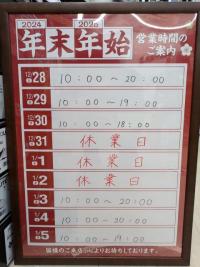 2024 2025
年末年始
営業時間の
ご案内
12/28 10:00～20:00
12/29 10:00～19:00
12/30 10:00～18:00
12/31 休業日
1/1 休業日
1/2 休業日
1/3 10:00～20:00
1/4 10:00～20:00
1/5 10:00～19:00
皆様のご来店心よりお待ちしております。